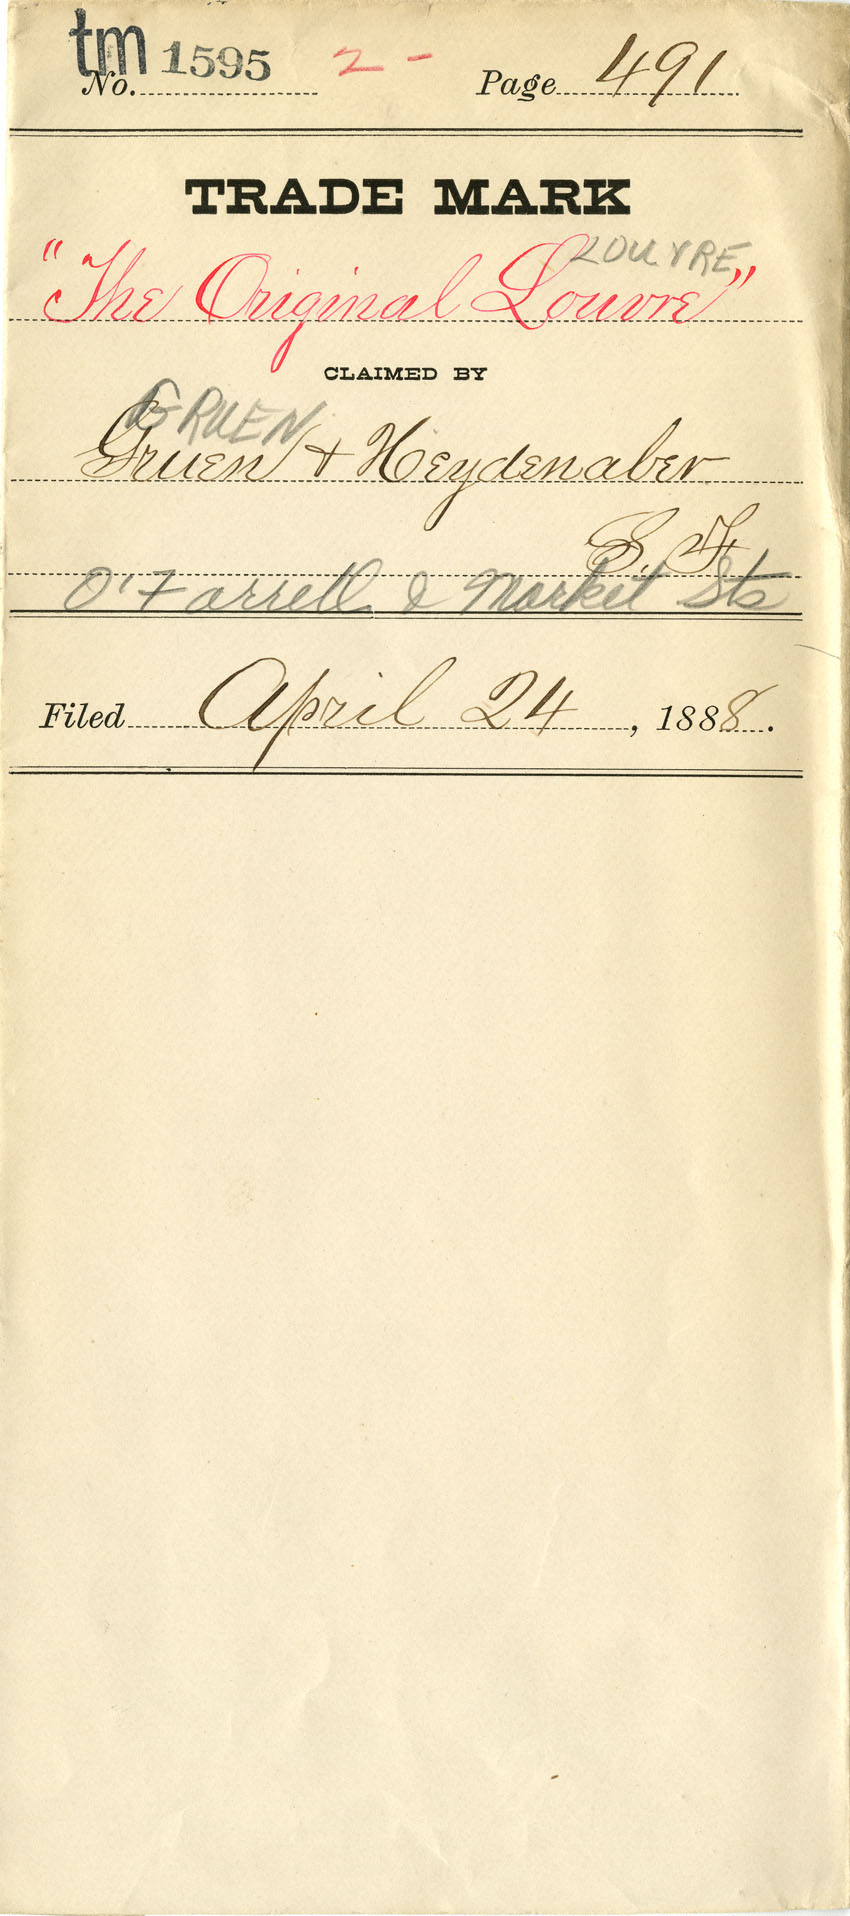 tm 1595 2 -
No. Page 491
TRADE MARK
LOUVRE
"The Original Louvre"
CLAIMED BY
GRUEN
Gruen & Heydenaber
S. F.
O'Farrell & Market Sts
Filed April 24, 1888.